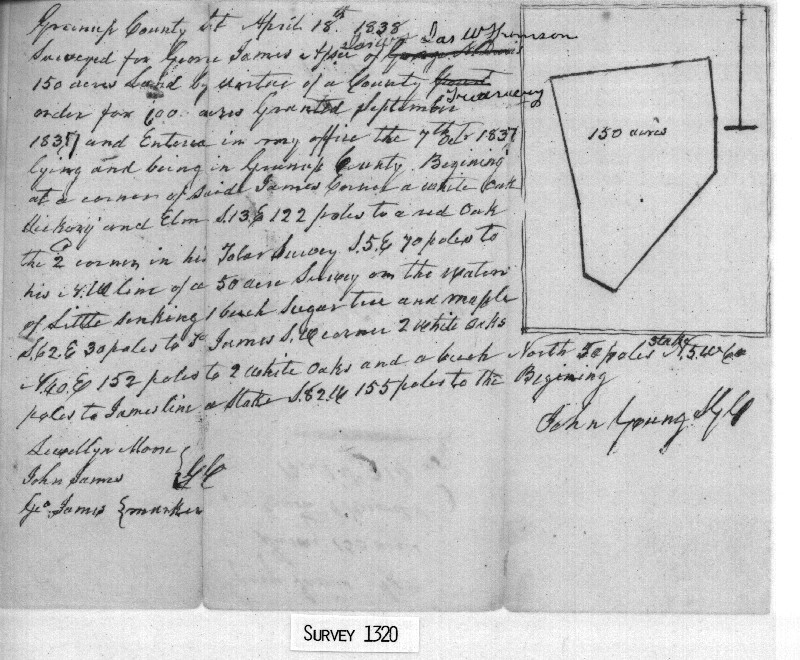 Greenup County Sct April 18th 1838
Jas W Thomson
Surveyed for George James Assee of
150 acres Land by vertue of a County Court
Treasurery
order for 600 acres Granted September
1837 and Entered in my office the 7th Octr 1837
lying and being in Greenup County Begining
at a corner of said James Corner a white Oak
Hickory and Elm S.13.E 122 poles to a red Oak
the 2 corner in his Survey S.5.E 70 poles to
his N.W line of a 50 acre Survey on the waters
of Little sinking 1 beech Sugar tree and maple
S.62.E 30 poles to James S.W corner 2 white oaks
N.40.E 152 poles to 2 white Oaks and a beech North 50 poles Stake N.5.W 60
poles to James line a Stake S.82.W 155 poles to the Begining
John Young S G C
Lewellyn Moore
John James } CC
Geo James } marker
150 acres
SURVEY 1320